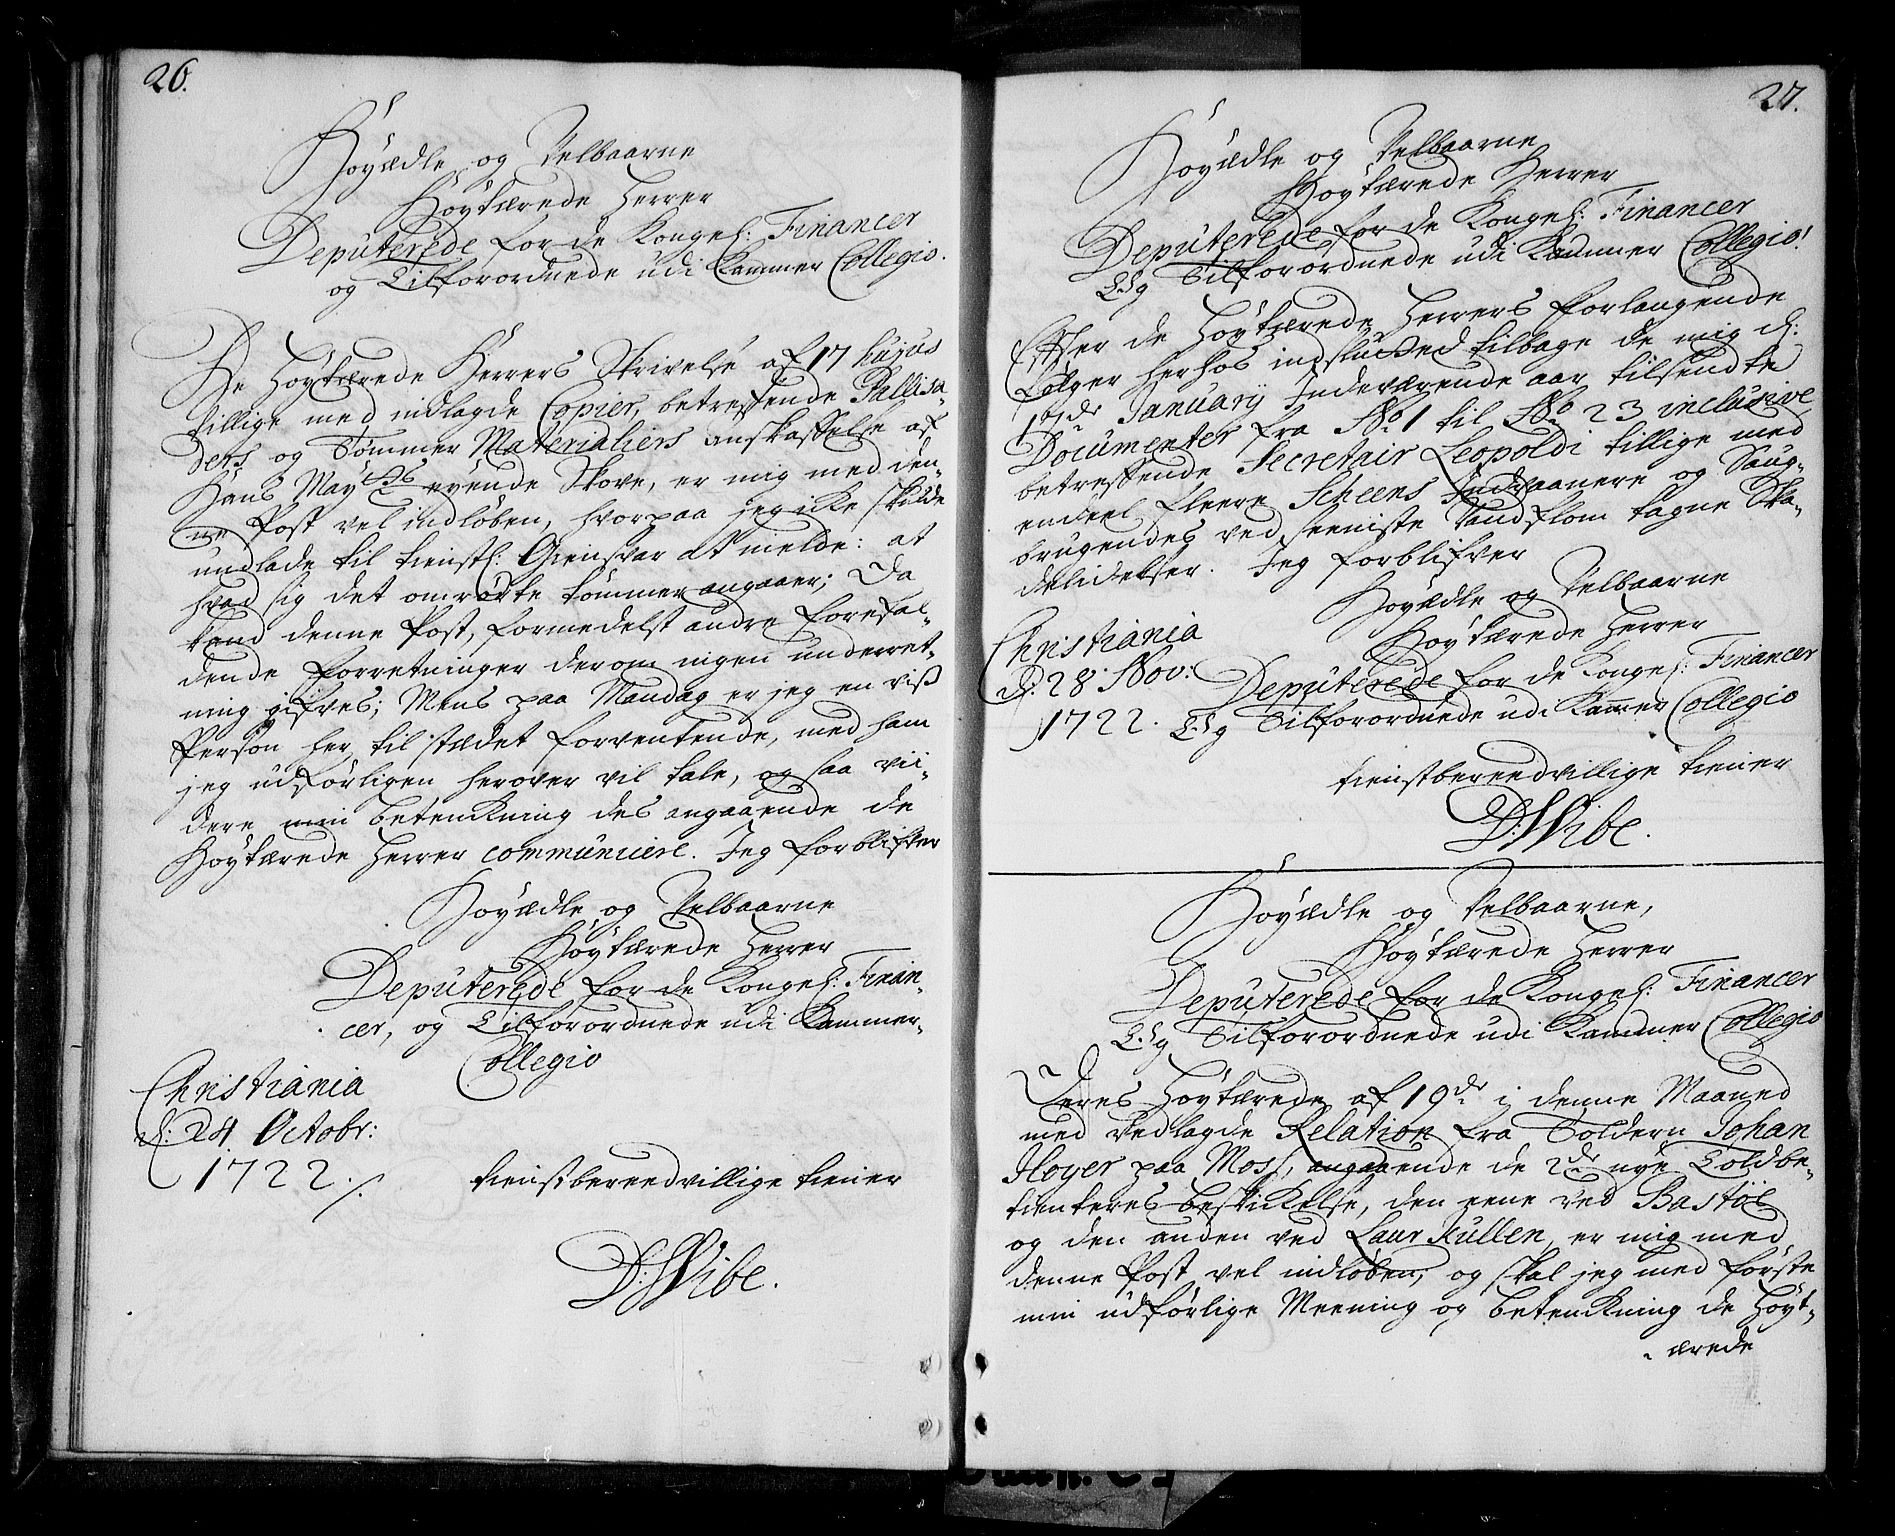 26.
Høyædle og Velbaarne
Høytærede Herrer
Deputerede for de Kongel: Financer
og Tilforordnede udi Kammer Collegio.
De Høytærede Herrers Skrivelse af 17 hujus
tillige med indlagde Copier, betreffende Pallisa-
ders og Tømmer Materialiers anskaffelse af
Hans May:ts eyende Skove, er mig med den-
ne Post vel indløben, hvorpaa jeg icke skulde
undlade til tienstl. Giensvar at melde: at
hvad sig det omrørte tømmer angaaer; Da
kand denne Post, formedelst andre forefal-
dende Forretninger derom ingen underret-
ning gifves; Mens paa Mandag er jeg en viß
Person her til stædet forventende, med ham
jeg udførligen herover vil tale, og saa vii-
dere min betenkning des angaaende de
Høytærede Herrer communicere. Jeg forblifver
Høyædle og Velbaarne
Høytærede Herrer
Deputerede for de Kongel: Finan-
cer, og Tilforordnede udi Kammer-
Collegio
Christiania
d: 24 Octobr:
1722 ./.
tienstbereedvillige tiener
D: Wibe.
27.
Høyædle og Velbaarne
Høytærede Herrer
Deputerede for de Kongel: Financer
Og Tilforordnede udi Kammer Collegio!
Efter de Høytærede Herrers forlangende
følger herhos indslutted tilbage de mig d:
Januarij Indeværende aar tilsendte
Documenter fra No 1 til No 23 inclusive
betreffende Secretair Leopoldi tillige med
endeel fleere Scheens Indvaanere og Saug-
brugendes ved seeniste Vandflom tagne Ska-
delidelser. Jeg forblifver
Høyædle og Velbaarne
Høytærede Herrer
Christiania
Deputerede for de Kongel: Financer
d: 28 Nov:
1722. Og Tilforordnede udi Kammer Collegio
tienstbereedvillige tiener
D: Wibe.
Høyædle og Velbaarne,
Høytærede Herrer
Deputerede for de Kongel: Financer
Og Tilforordnede udi Kammer Collegio
Deres Høytærede af 19de i denne Maaned
med vedlagde Relation fra Toldern Johan
Hoyer paa Moss, angaaende de 2de nye Toldbe-
tienteres beskikelse, den eene ved Bastøe
og den anden ved Laurkullen, er mig med
denne Post vel indløben, og skal jeg med første
min udførlige Meening og betenkning de Høyt-
ærede